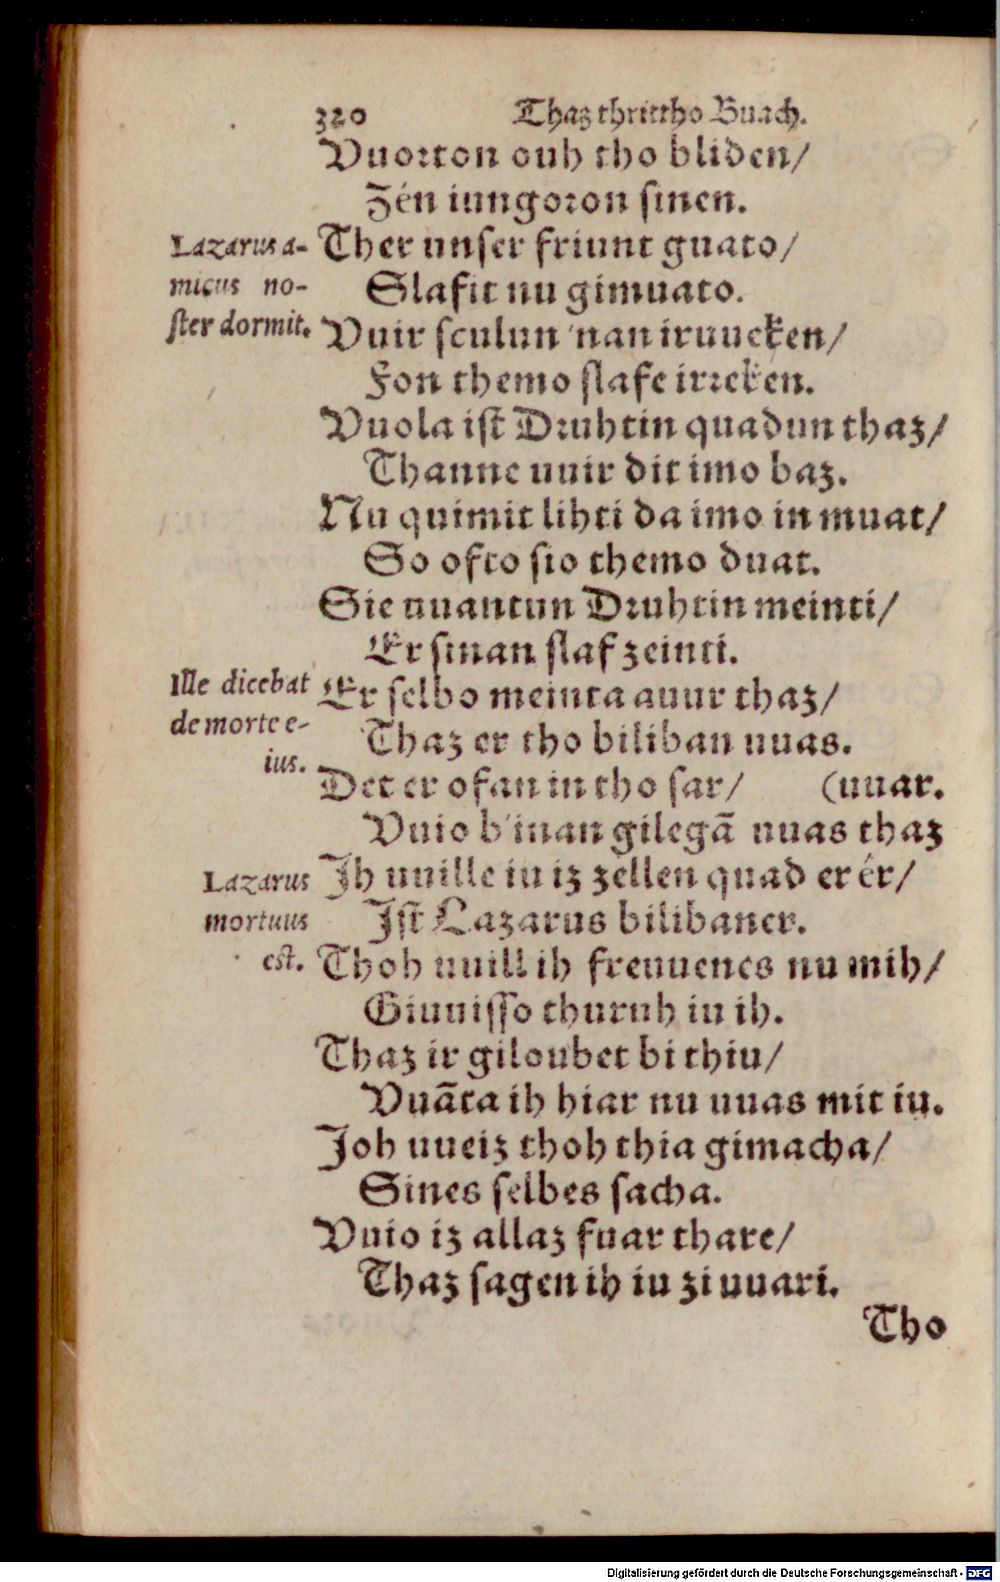 320 Thaz thrittho Buach.
Vuorton ouh tho bliden/
Zén iungoron sinen.
Lazarus a-
micus no-
ster dormit.
Ther unser friunt guato/
Slafit nu gimuato.
Vuir sculun 'nan iruuecken/
Fon themo slafe irrecken.
Vuola ist Druhtin quadun thaz/
Thanne uuir dit imo baz.
Nu quimit lihti da imo in muat/
So ofto sio themo duat.
Sie uuantun Druhtin meinti/
Er sinan slaf zeinti.
Ille dicebat
de morte e-
ius.
Er selbo meinta auur thaz/
Thaz er tho biliban uuas.
Det er ofan in tho sar/ (uuar.
Vuio b'inan gilegã uuas thaz
Lazarus
mortuus
est.
Ih uuille iu iz zellen quad er ér/
Ist Lazarus bilibaner.
Thoh uuill ih freuuenes nu mih/
Giuuisso thuruh iu ih.
Thaz ir giloubet bi thiu/
Vuãta ih hiar nu uuas mit iu.
Joh uueiz thoh thia gimacha/
Sines selbes sacha.
Vuio iz allaz fuar thare/
Thaz sagen ih iu zi uuari.
Tho
Digitalisierung gefördert durch die Deutsche Forschungsgemeinschaft - DFG